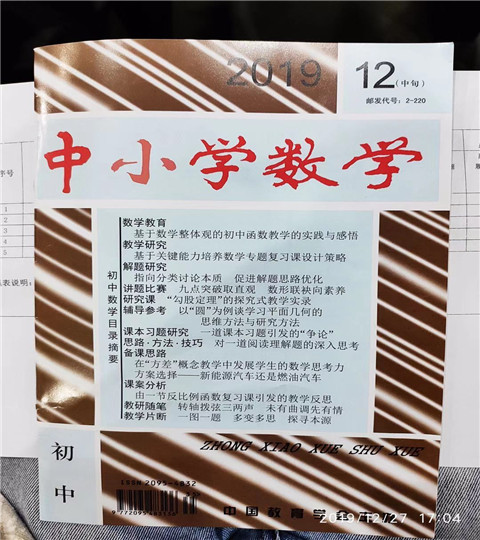 2019
12(中旬)
邮发代号：2-220
中小学数学
序号
1
2
3
4
5
表说明：
初中数学目录摘要
数学教育
基于数学整体观的初中函数教学的实践与感悟
教学研究
基于关键能力培养数学专题复习课设计策略
解题研究
指向分类讨论本质 促进解题思路优化
讲题比赛 九点突破取直观 数形联袂向素养
研究课 “勾股定理”的探究式教学实录
辅导参考 以“圆”为例谈学习平面几何的
思维方法与研究方法
课本习题研究 一道课本习题引发的“争论”
思路·方法·技巧 对一道阅读理解题的深入思考
备课思路
在“方差”概念教学中发展学生的数学思考力
方案选择——新能源汽车还是燃油汽车
课案分析
由一节反比例函数复习课引发的教学反思
教研随笔 转轴拨弦三两声 未有曲调先有情
教学片断 一图一题 多变多思 探寻本源
初中
ZHONG XIAO XUE SHU XUE
ISSN 2095-4832
中国教育学会
2019/12/27 17:04